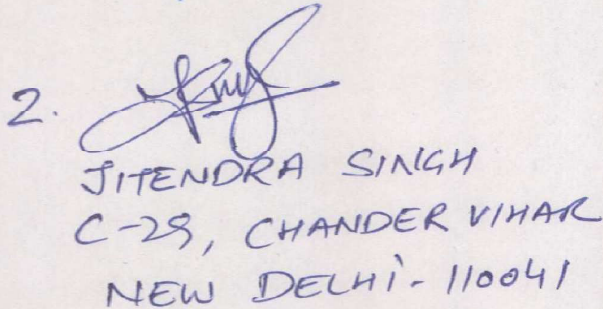 2.
JITENDRA SINGH
C-29, CHANDER VIHAR
NEW DELHI - 110041